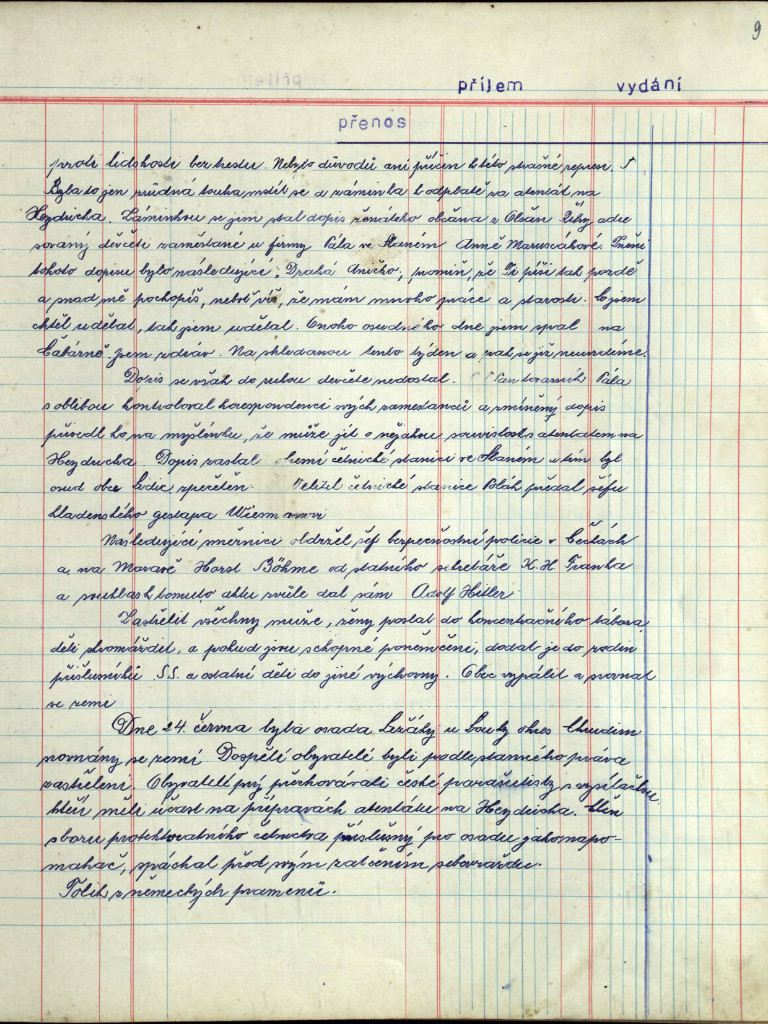 9
příjem vydání
přenos
proti lidskosti bez trestu. Nebylo důvodů ani příčin k této strašné represi.
Byla to jen zrůdná touha, mstít se a záminka k odplatě za atentát na
Heydricha. Záminkou se jim stal dopis ženatého občana z Olšan Říhy, adre
sovaný děvčeti zaměstané u firmy Pála ve Slaném Anně Maruscákové. Znění
tohoto dopisu bylo následující: Drahá Aničko, promiň, že Ti píši tak pozdě
a snad mě pochopíš, neboť víš, že mám mnoho práce a starosti. Co jsem
chtěl udělat, tak jsem udělal. Onoho osudného dne jsem spal na
Čabárně. jsem zdráv. Na shledanou tento týden a pak se již neuvidíme.
Dopis se však do rukou devčete nedostal. Pan továrník Pála
s oblibou kontroloval korespondenci svých zamestanců a zmíněný dopis
přivedl ho na myšlénku, že může jít o nějakou souvislost s atentatem na
Heydricha. Dopis zaslal četnické stanici ve Slaném a tím byl
osud obce Lidic zpečetěn. Velitel četnické stanice Bláh předal šéfu
kladenského gestapa Wiesmannovi
Následující směrnici obdržel šéf bezpečnostní policie v Čechách
a na Moravě Horst Böhme od statního sekretáře K. H. Franka
a souhlas k tomuto aktu zvůle dal sám Adolf Hitler
Zastřelit všechny muže, ženy poslat do koncentračného tábora,
děti shromáždit, a pokud jsou schopné poněmčení, dodat je do rodin
příslusníků S.S. a ostatní děti do jiné výchovny. Obec vypálit a srovnat
se zemí
Dne 24. června byla osada Ležáky u Louky okres Chrudim
srovnány se zemí Dospělí obyvatelé byli podle stanného práva
zastřeleni. Obyvatelí prý přechovávali české parašutisty s vysílačkou
kteří měli účast na přípravách atentátu na Heydricha. Člen
sboru protektoratního četnictva příslušný pro osadu jako napo-
mahač, spáchal před svým zatčením sebevraždu.
Tolik z německých pramenů.